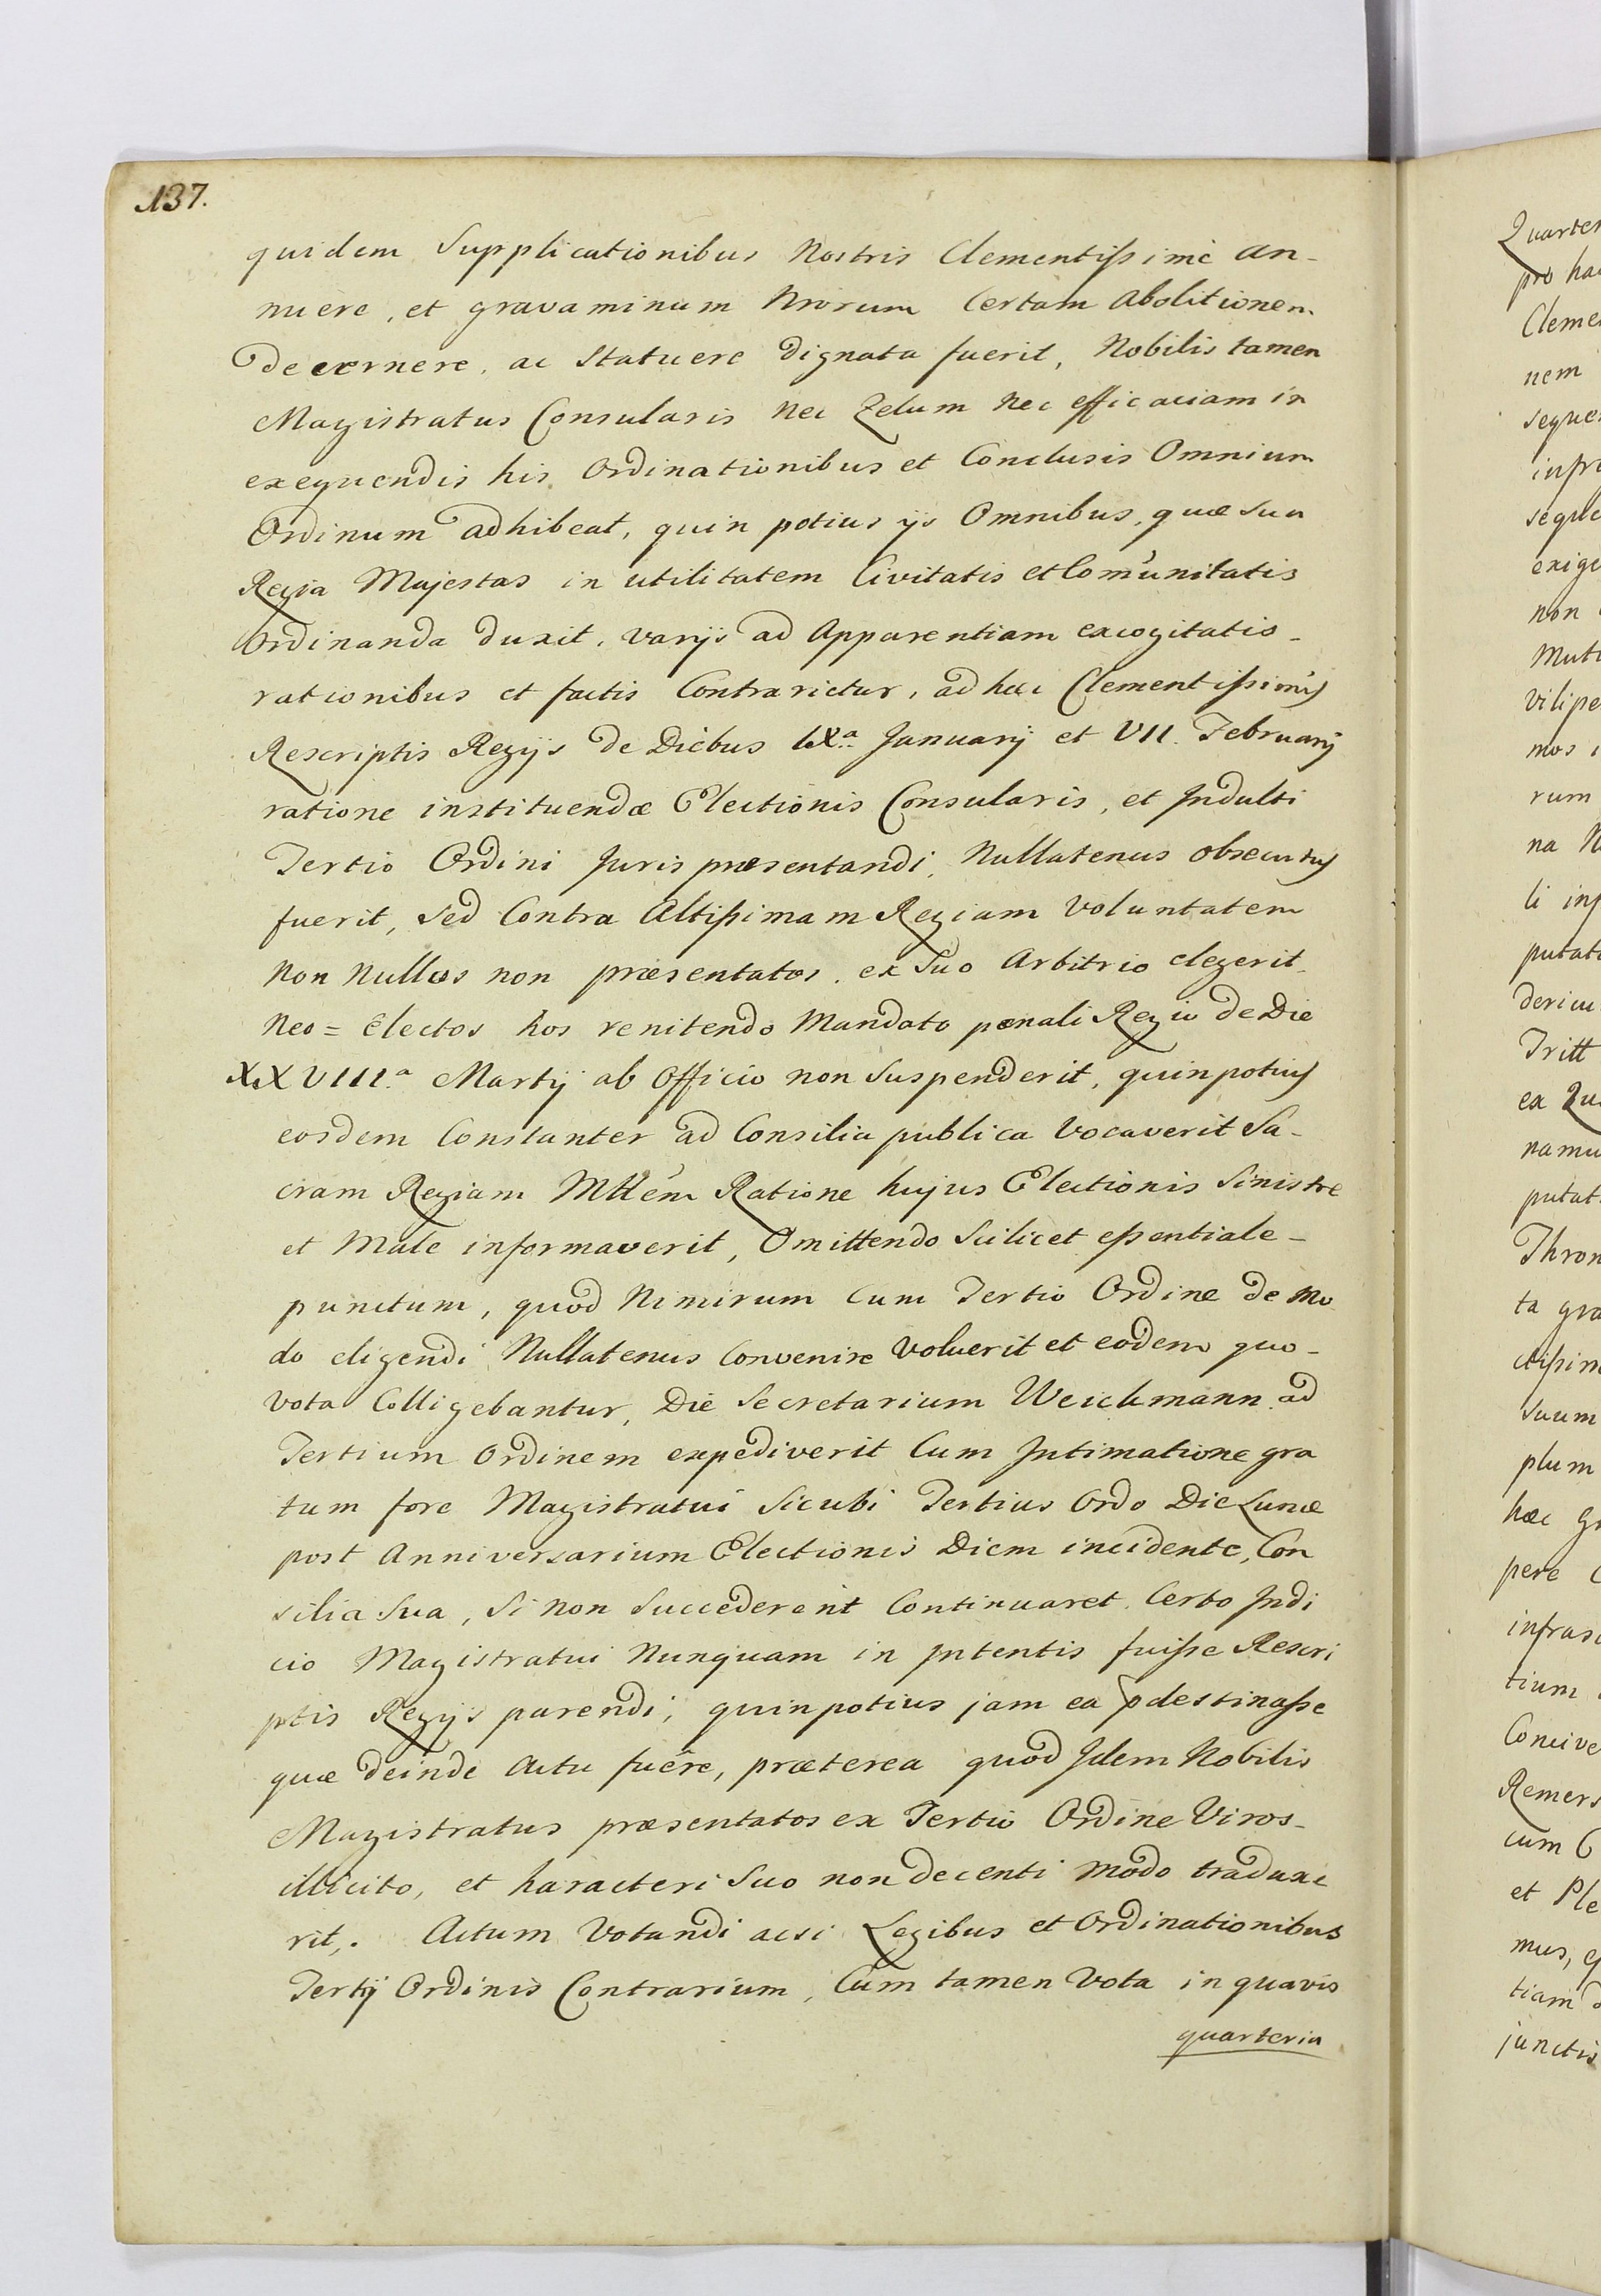 137.
quidem Supplicationibus Nostris Clementissimè an-
nuere, et gravaminum Nrorum Certam Abolitionem
decernere, ac Statuere dignata fuerit, Nobilis tamen
Magistratus Consularis nec Zelum nec efficaciam in
exequendis his Ordinationibus et Conclusis Omnium
Ordinum adhibeat, quin potius ijs Omnibus, quæ Sua
Regia Majestas in utilitatem Civitatis et Com̃unitatis
Ordinanda duxit, varijs ad Apparentiam excogitatis-
rationibus et factis Contrarietur, ad hæc Clementissimis
Rescriptis Regijs de Diebus IXa. Januarij et VII. Februarij
ratione instituendæ Electionis Consularis, et Indulti
Tertio Ordini Juris præsentandi, Nullatenus obsecutus
fuerit, sed Contra Altissimam Regiam Voluntatem
Non Nullos non præsentatos, ex Suo Arbitrio elegerit
Neo=Electos hos renitendo Mandato pœnali Regio de Die
XXVIII.a Martij ab Officio non Suspenderit, quin potius
eosdem Constanter ad Consilia publica Vocaverit Sa-
cram Regiam Mttem̃ Ratione hujus Electionis Sinistre
et Male informaverit, Omittendo Scilicet essentiale-
punctum, quod Nimirum Cum Tertio Ordine de mo
do eligendi Nullatenus Convenire Voluerit et eodem quo-
vota Colligebantur, Die Secretarium Weickmann ad
Tertium Ordinem expediverit Cum Intimatione gra
tum fore Magistratui Sicubi Tertius Ordo Die Lunæ
post Anniversarium Electionis Diem incidente, Con
silia Sua, Si non Succederent Continuaret. Certo Indi
cio Magistratui Nunquam in Intentis fuisse Rescri
ptis Regijs parendi; quin potius jam ea pdestinasse
quæ deinde Actu fuêre, præterea quod Idem Nobilis
Magistratus præsentatos ex Tertio Ordine Viros-
illicito, et haracteri Suo non decenti modo traduxe
rit,. Actum Votandi acsi Legibus et Ordinationibus
Tertij Ordinis Contrarium, Cum tamen Vota in quavis
quarteria
Quarter
pro ha
Cleme
nem
seque
infr
exige
non
Mut
vilipe
mos i
rum
na N
li inf
putat
dericu
Tritt
ex Qu
namu
putat
Thron
ta gra
ctissim
Suum
plum
hæc gr
pere C
infras
tium
Concive
Remers
cum C
et Ple
mus, q
tiam
junctis